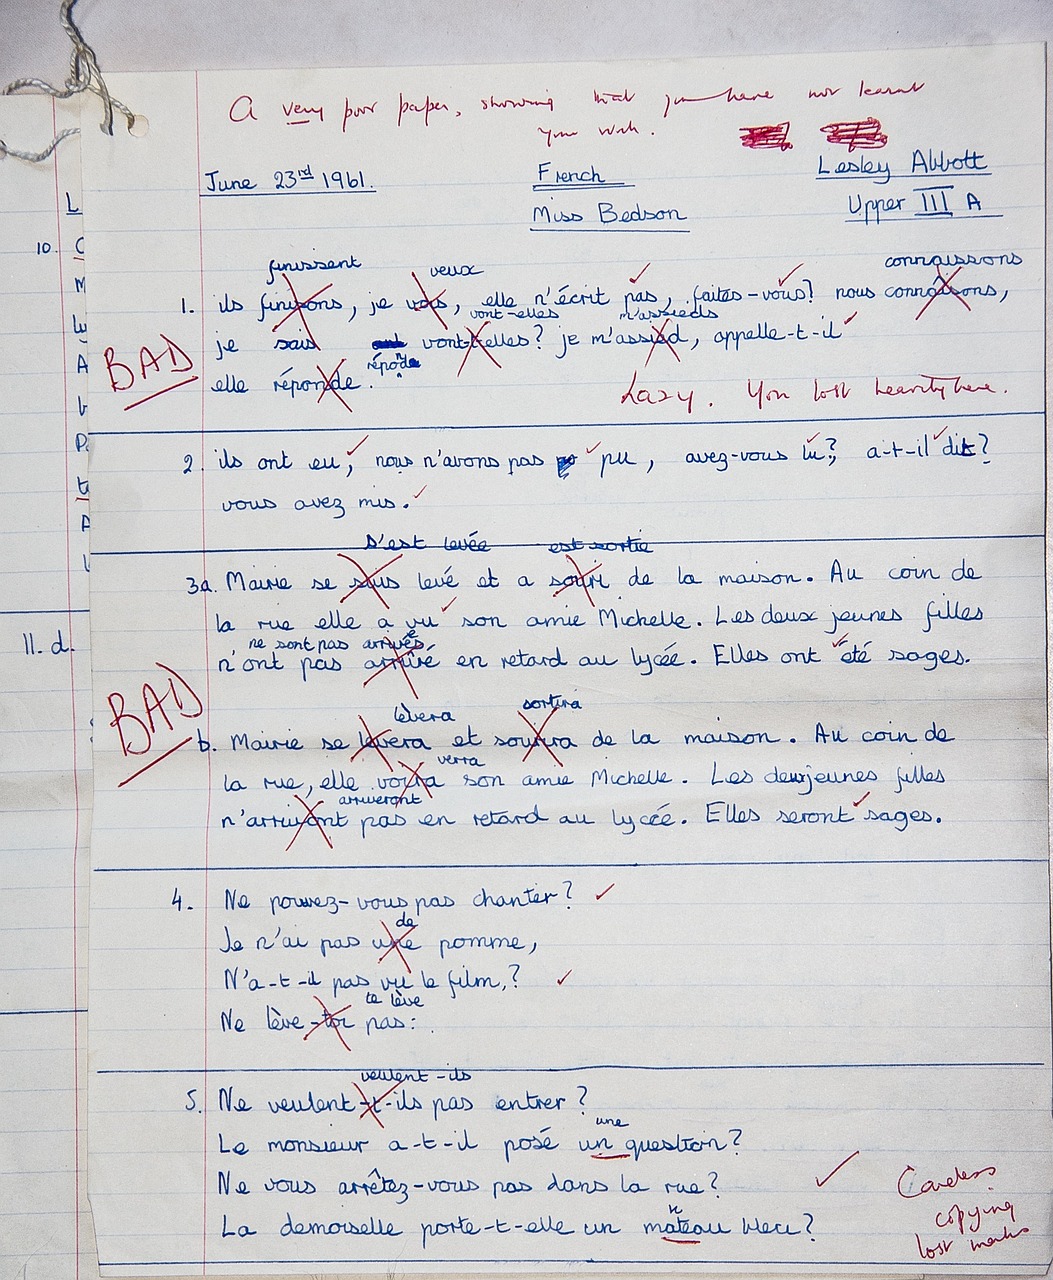 A very poor paper, showing that you have not learnt
your work.
June 23rd 1961.
French
Lesley Abbott
Miss Bedson
Upper III A
L
10.
C
M
A
P
t
A
11. d.
finissent
veux
connaissons
1. ils finisons, je vois, elle n'écrit pas, faites-vous? nous connaisons,
vont-elles
m'assieds
BAD
je sais vont-t-elles? je m'assied, appelle-t-il
réponde
elle réponde.
Lazy. You lost heavily here.
2. ils ont eu, nous n'avons pas pu, avez-vous lu?, a-t-il dit?
vous avez mis.
s'est levée
est sortie
3a. Mairie se suis levé et a souri de la maison. Au coin de
la rue elle a vu son amie Michelle. Les deux jeunes filles
ne sont pas arrivées
n'ont pas arrivé en retard au lycée. Elles ont été sages.
BAD
lèvera
sortira
b. Mairie se levera et sourira de la maison. Au coin de
verra
la rue, elle voira son amie Michelle. Les deux jeunes filles
arriveront
n'arrivont pas en retard au lycée. Elles seront sages.
4. Ne pouvez-vous pas chanter?
de
Je n'ai pas une pomme,
N'a-t-il pas vu le film,?
te lève
Ne lève-toi pas:
veulent-ils
5. Ne veulent-t-ils pas entrer?
une
Le monsieur a-t-il posé un question?
Ne vous arrêtez-vous pas dans la rue?
n
La demoiselle porte-t-elle un mateau bleu?
Careless
copying
lost marks